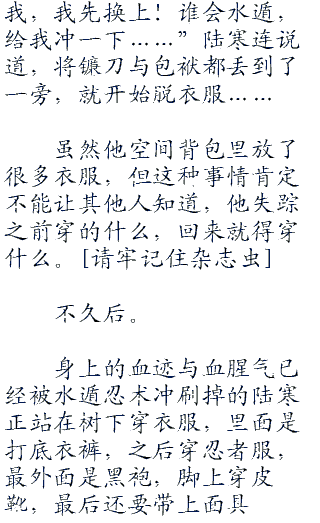 我，我先换上！谁会水遁，
给我冲一下……”陆寒连说
道，将镰刀与包袱都丢到了
一旁，就开始脱衣服……
虽然他空间背包里放了
很多衣服，但这种事情肯定
不能让其他人知道，他失踪
之前穿的什么，回来就得穿
什么。[请牢记住杂志虫]
不久后。
身上的血迹与血腥气已
经被水遁忍术冲刷掉的陆寒
正站在树下穿衣服，里面是
打底衣裤，之后穿忍者服，
最外面是黑袍，脚上穿皮
靴，最后还要带上面具